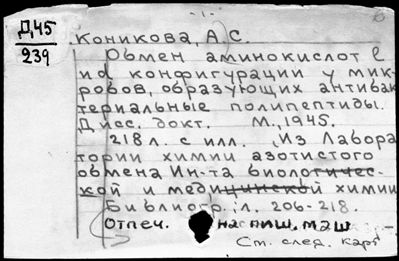 -1-
Д45
239
Коникова, А. С.
Обмен аминокислот l
и d конфигурации у мик-
робов, образующих антибак-
териальные полипептиды.
Дисс. докт. М., 1945.
218 л. с илл. Из Лабора
тории химии азотистого
обмена Ин-та биологичес-
кой и медицинской химии
Библиогр: л. 206-218.
Отпеч. на пиш. маш
См. след. карт